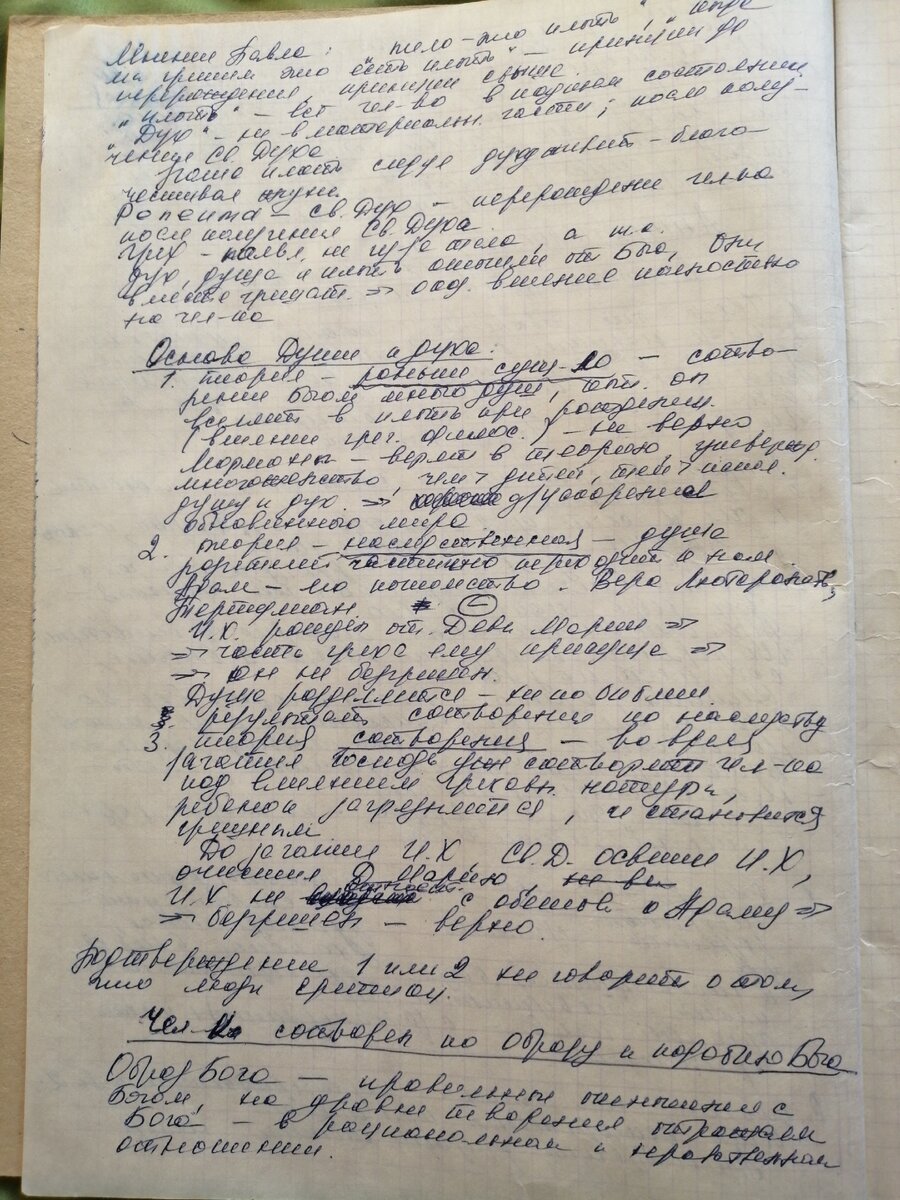 Мнение Павла: "тело-это плоть",
на грешим это есть плоть" — принцип до
перерождения, принципи свыше.
"плоть" — всё чел-во в падшем состоянии
"Дух" — не в материальн. части; после полу-
чения Св. Духа
наша плоть
честивая
— Св. Дух — перерождение чел-ка
после получения Св. Духа.
Грех — появл. не из-за тела, а т.о.
дух, душа и плоть отошли от Бога, Они
вместе грешат. ⇒ влияние полностью
на чел-ка
Основа Души и духа.
1. теория — раньше сущ-ло — сотво-
рение Богом много душ, кот. он
вселяет в плоть при рождении.
(влияние грег. филос.) — не верно
Мормоны — верят в теорию,
многоженство, чем > детей, тем >
душ и дух. ⇒ д/ускорения
обновлённого мира
2. теория — наследственная — душа
родителей частично переходит к нам.
Адам — его потомство. Вера Лютеранств,
Тертулиан (–)
И.Х. рождён от Девы Марии ⇒
⇒ часть греха ему присуща ⇒
⇒ он не безгрешен.
Душа разделяется — не по библии
результат сотворения по наследству
3. теория сотворения — во время
зачатия Господь сотворяет чел-ка
под влиянием греховн. натуры,
ребенок загрязняется, и становится
грешным
До зачатия И.Х. Св. Д. освятил И.Х,
очистил Д. Марию,
И.Х не относит. с обетов. к Адаму ⇒
⇒ безгрешен — верно.
Подтверждение 1 или 2 не говорит о том,
что люди еретики.
Чел-к сотворен по Образу и подобию Бога
Образ Бога — правильные отношения с
Богом, на уровне творения отражаем
Бога — в рациональном и нравственном
отношении.